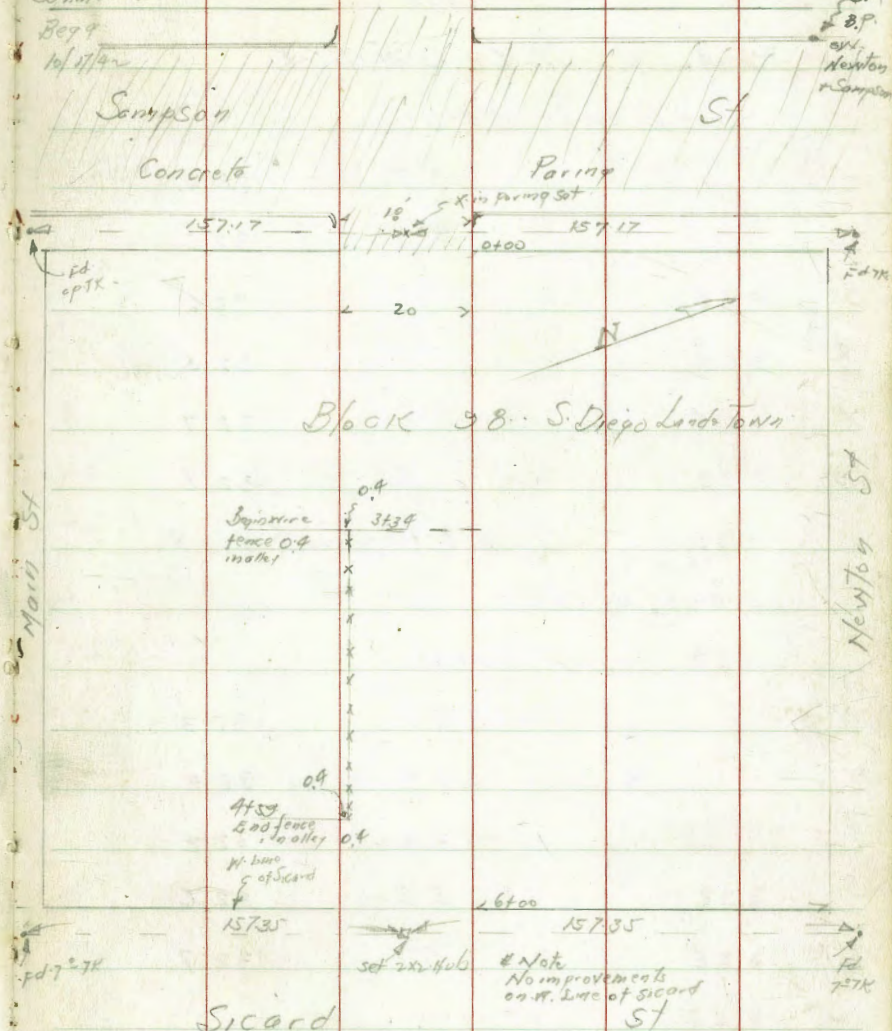 Beg 9
B.P.
Newton
+ Sampson
Sampson St
Concrete Paving
x in paving set
157.17 10' 157.17
0+00
Fd
Fd TK
20
N
Block 98 S. Diego Land & Town
Main St
Newton St
0.4
Begin wire 3+34
fence 0.4
in alley
0.4
4+59
End fence
in alley 0.4
W. Line
of Sicard
6+00
157.35 157.35
Fd 7" TK
set 2x2 Hub
# Note
No improvements
on W. Line of Sicard
Fd
7" TK
Sicard St